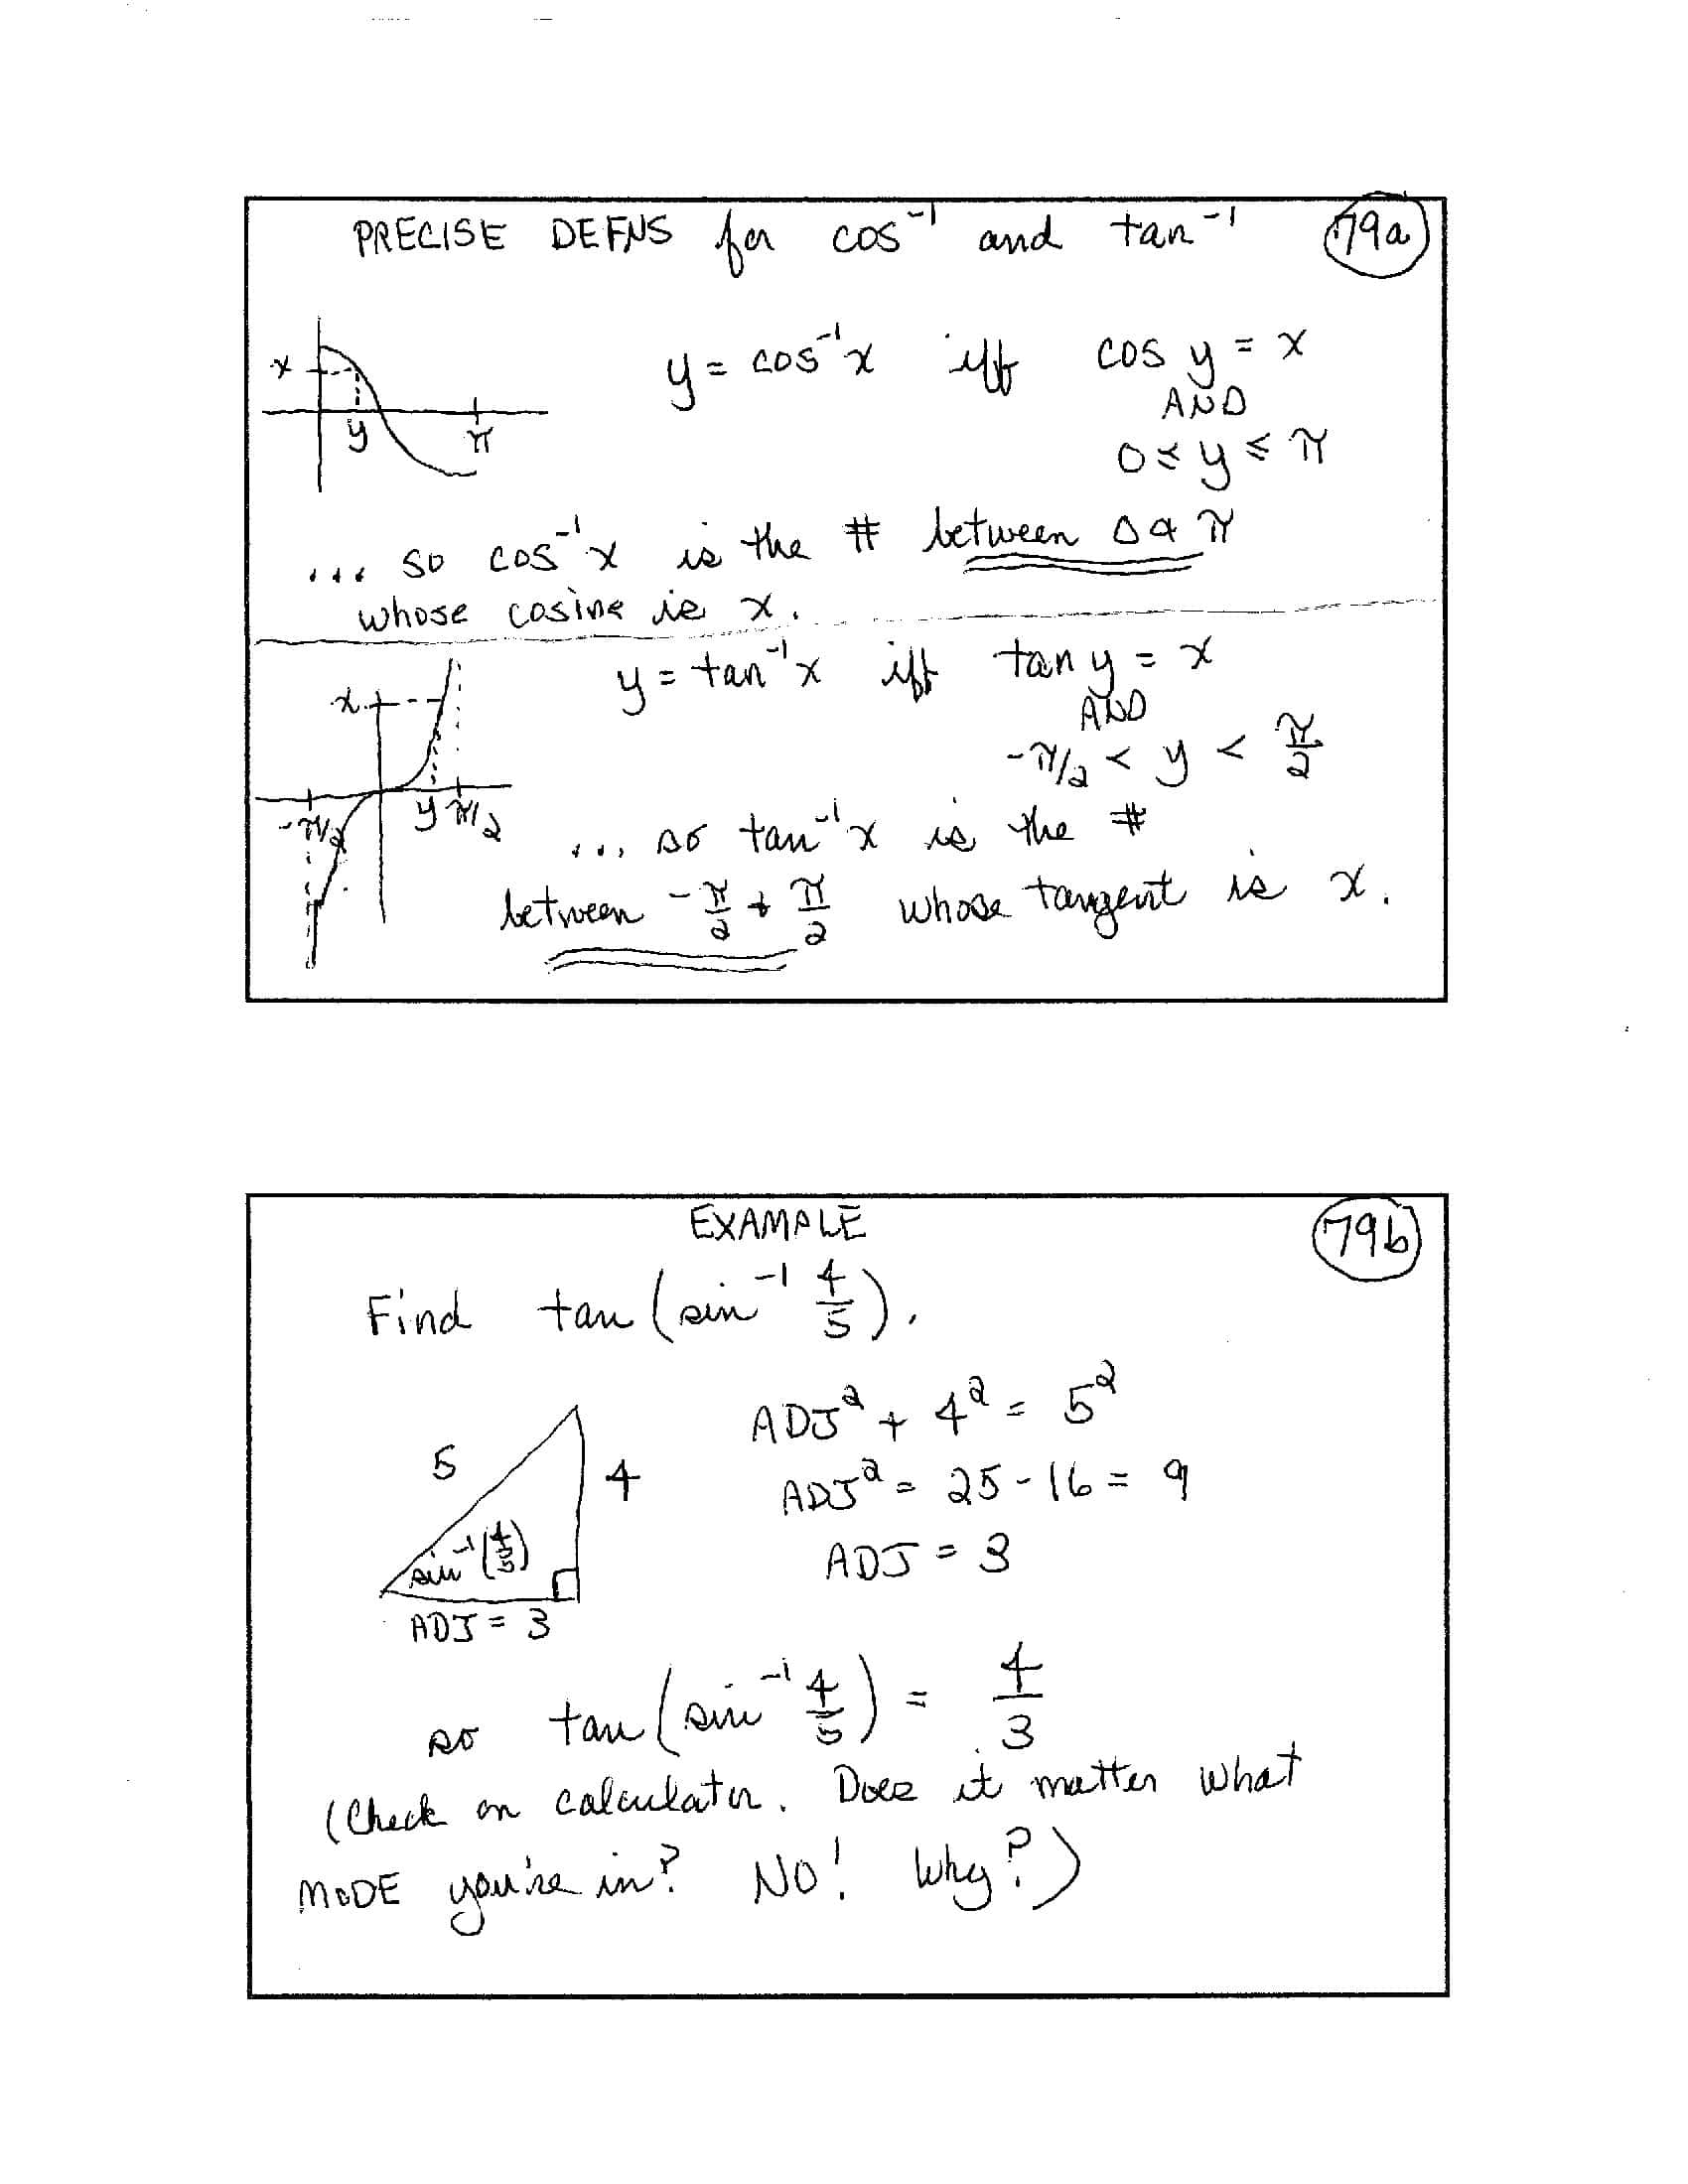 PRECISE DEFNS for cos⁻¹ and tan⁻¹ 79a
x
y π
y = cos⁻¹x iff cos y = x
AND
0 ≤ y ≤ π
... so cos⁻¹x is the # between 0 & π
whose cosine is x.
y = tan⁻¹x iff tan y = x
AND
-π/2 < y < π/2
x
-π/2 y π/2
... so tan⁻¹x is the #
between -π/2 + π/2 whose tangent is x.
EXAMPLE 79b
Find tan(sin⁻¹ 4/5).
ADJ² + 4² = 5²
5 4
ADJ² = 25 - 16 = 9
sin⁻¹(4/5)
ADJ = 3
ADJ = 3
so tan(sin⁻¹ 4/5) = 4/3
(Check on calculator. Does it matter what
MODE you're in? NO! Why?)